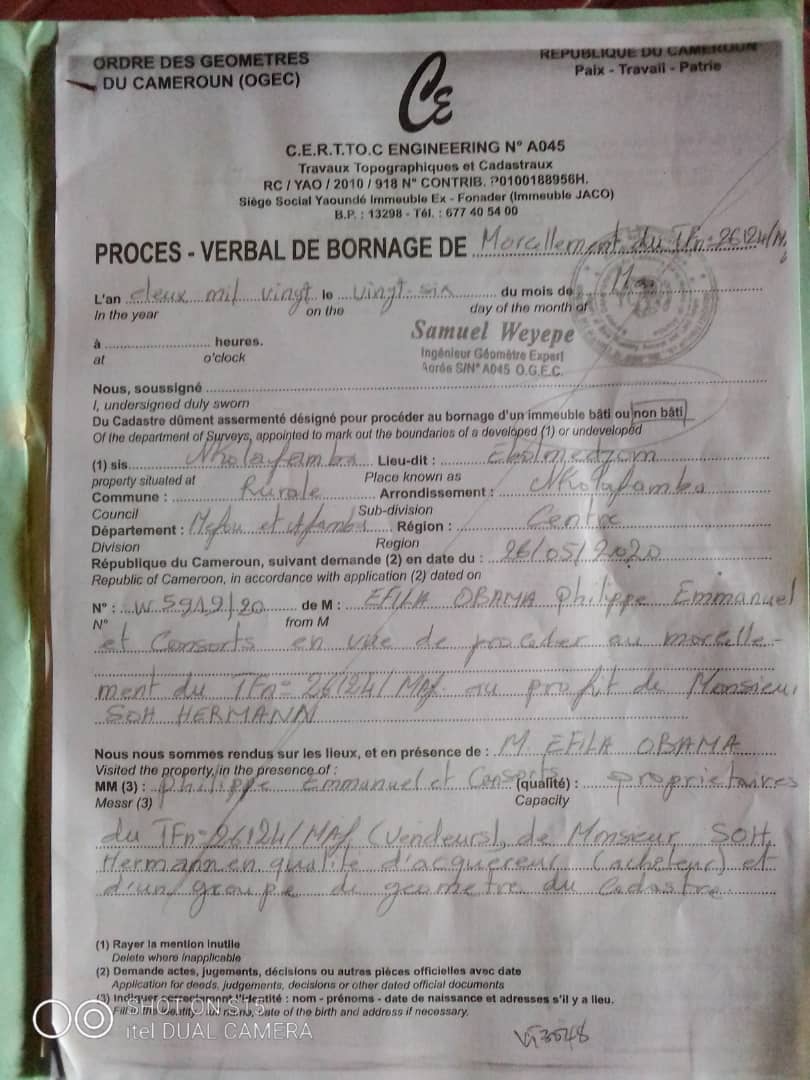 ORDRE DES GEOMETRES
DU CAMEROUN (OGEC)
REPUBLIQUE DU CAMEROUN
Paix - Travail - Patrie
CE
C.E.R.T.TO.C ENGINEERING N° A045
Travaux Topographiques et Cadastraux
RC / YAO / 2010 / 918 N° CONTRIB. P0100188956H.
Siège Social Yaoundé Immeuble Ex - Fonader (Immeuble JACO)
B.P. : 13298 - Tél. : 677 40 54 00
PROCES - VERBAL DE BORNAGE DE Morcellement du TFn=26124/M
L'an deux mil vingt le vingt-six du mois de Mai
In the year on the day of the month of
à heures.
at o'clock
Samuel Weyepe
Ingénieur Géomètre Expert
Agrée S/N° A045 O.G.E.C.
Nous, soussigné
I, undersigned duly sworn
Du Cadastre dûment assermenté désigné pour procéder au bornage d'un immeuble bâti ou non bâti
Of the department of Surveys, appointed to mark out the boundaries of a developed (1) or undeveloped
(1) sis Nkolafamba Lieu-dit : Ekolmedzom
property situated at Place known as
Commune : Rurale Arrondissement : Nkolafamba
Council Sub-division
Département : Mefou et Afamba Région : Centre
Division Region
République du Cameroun, suivant demande (2) en date du : 26/05/2020
Republic of Cameroon, in accordance with application (2) dated on
N° : W5919/20 de M : EFILA OBAMA Philippe Emmanuel
N° from M
et Consorts en vue de procéder au morcelle-
ment du TFn=26124/MAf au profit de Monsieur
SOH HERMANN
Nous nous sommes rendus sur les lieux, et en présence de : M. EFILA OBAMA
Visited the property, in the presence of :
MM (3) : Philippe Emmanuel et Consorts (qualité) : proprietaires
Messr (3) Capacity
du TFn=26124/MAf (Vendeurs), de Monsieur SOH
Hermann en qualité d'acquereur (acheteur) et
d'un groupe de geometre du Cadastre
(1) Rayer la mention inutile
Delete where inapplicable
(2) Demande actes, jugements, décisions ou autres pièces officielles avec date
Application for deeds, judgements, decisions or other dated official documents
(3) Indiquer correctement l'identité : nom - prénoms - date de naissance et adresses s'il y a lieu.
date of the birth and address if necessary.
SHOT ON S15
itel DUAL CAMERA